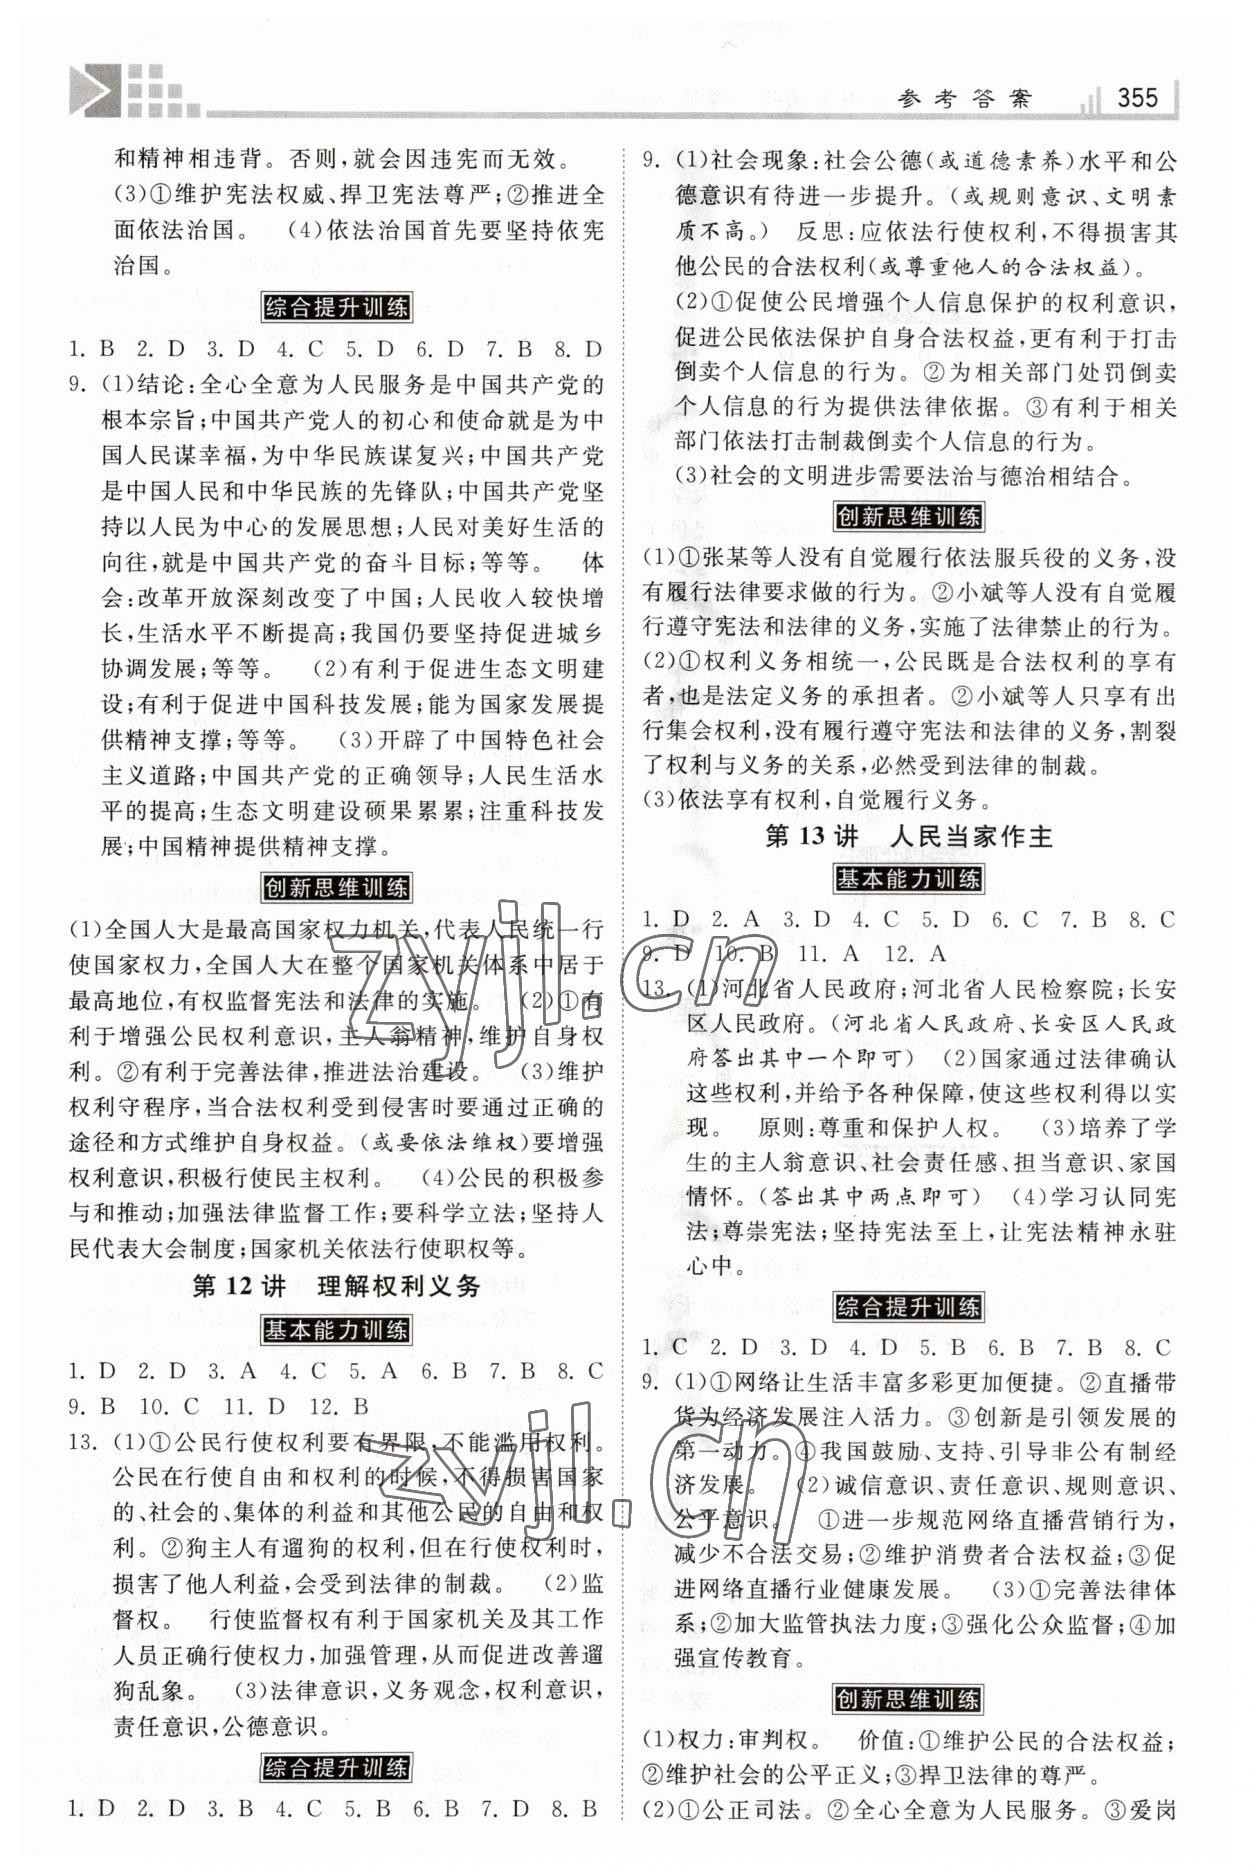 参考答案 355
和精神相违背。否则,就会因违宪而无效。
(3)①维护宪法权威、捍卫宪法尊严;②推进全
面依法治国。 (4)依法治国首先要坚持依宪
治国。
综合提升训练
1. B 2. D 3. D 4. C 5. D 6. D 7. B 8. D
9. (1)结论:全心全意为人民服务是中国共产党的
根本宗旨;中国共产党人的初心和使命就是为中
国人民谋幸福,为中华民族谋复兴;中国共产党
是中国人民和中华民族的先锋队;中国共产党坚
持以人民为中心的发展思想;人民对美好生活的
向往,就是中国共产党的奋斗目标;等等。 体
会:改革开放深刻改变了中国;人民收入较快增
长,生活水平不断提高;我国仍要坚持促进城乡
协调发展;等等。 (2)有利于促进生态文明建
设;有利于促进中国科技发展;能为国家发展提
供精神支撑;等等。 (3)开辟了中国特色社会
主义道路;中国共产党的正确领导;人民生活水
平的提高;生态文明建设硕果累累;注重科技发
展;中国精神提供精神支撑。
创新思维训练
(1)全国人大是最高国家权力机关,代表人民统一行
使国家权力,全国人大在整个国家机关体系中居于
最高地位,有权监督宪法和法律的实施。 (2)①有
利于增强公民权利意识,主人翁精神,维护自身权
利。②有利于完善法律,推进法治建设。 (3)维护
权利守程序,当合法权利受到侵害时要通过正确的
途径和方式维护自身权益。(或要依法维权)要增强
权利意识,积极行使民主权利。 (4)公民的积极参
与和推动;加强法律监督工作;要科学立法;坚持人
民代表大会制度;国家机关依法行使职权等。
第 12 讲 理解权利义务
基本能力训练
1. D 2. D 3. A 4. C 5. A 6. B 7. B 8. C
9. B 10. C 11. D 12. B
13. (1)①公民行使权利要有界限,不能滥用权利。
公民在行使自由和权利的时候,不得损害国家
的、社会的、集体的利益和其他公民的自由和权
利。②狗主人有遛狗的权利,但在行使权利时
损害了他人利益,会受到法律的制裁。 (2)监
督权。 行使监督权有利于国家机关及其工作
人员正确行使权力,加强管理,从而促进改善遛
狗乱象。 (3)法律意识,义务观念,权利意识,
责任意识,公德意识。
综合提升训练
1. D 2. D 3. B 4. C 5. B 6. B 7. D 8. B
9. (1)社会现象:社会公德(或道德素养)水平和公
德意识有待进一步提升。(或规则意识、文明素
质不高。) 反思:应依法行使权利,不得损害其
他公民的合法权利(或尊重他人的合法权益)。
(2)①促使公民增强个人信息保护的权利意识,
促进公民依法保护自身合法权益,更有利于打击
倒卖个人信息的行为。②为相关部门处罚倒卖
个人信息的行为提供法律依据。③有利于相关
部门依法打击制裁倒卖个人信息的行为。
(3)社会的文明进步需要法治与德治相结合。
创新思维训练
(1)①张某等人没有自觉履行依法服兵役的义务,没
有履行法律要求做的行为。②小斌等人没有自觉履
行遵守宪法和法律的义务,实施了法律禁止的行为。
(2)①权利义务相统一,公民既是合法权利的享有
者,也是法定义务的承担者。②小斌等人只享有出
行集会权利,没有履行遵守宪法和法律的义务,割裂
了权利与义务的关系,必然受到法律的制裁。
(3)依法享有权利,自觉履行义务。
第 13 讲 人民当家作主
基本能力训练
1. D 2. A 3. D 4. C 5. D 6. C 7. B 8. C
9. D 10. B 11. A 12. A
13. (1)河北省人民政府;河北省人民检察院;长安
区人民政府。(河北省人民政府、长安区人民政
府答出其中一个即可) (2)国家通过法律确认
这些权利,并给予各种保障,使这些权利得以实
现。 原则:尊重和保护人权。 (3)培养了学
生的主人翁意识、社会责任感、担当意识、家国
情怀。(答出其中两点即可) (4)学习认同宪
法;尊崇宪法;坚持宪法至上,让宪法精神永驻
心中。
综合提升训练
1. C 2. D 3. D 4. D 5. B 6. B 7. B 8. C
9. (1)①网络让生活丰富多彩更加便捷。②直播带
货为经济发展注入活力。③创新是引领发展的
第一动力。④我国鼓励、支持、引导非公有制经
济发展。 (2)诚信意识、责任意识、规则意识、
公平意识。 ①进一步规范网络直播营销行为,
减少不合法交易;②维护消费者合法权益;③促
进网络直播行业健康发展。 (3)①完善法律体
系;②加大监管执法力度;③强化公众监督;④加
强宣传教育。
创新思维训练
(1)权力:审判权。 价值:①维护公民的合法权益;
②维护社会的公平正义;③捍卫法律的尊严。
(2)①公正司法。②全心全意为人民服务。③爱岗
zyjl.cn
zyjl.cn